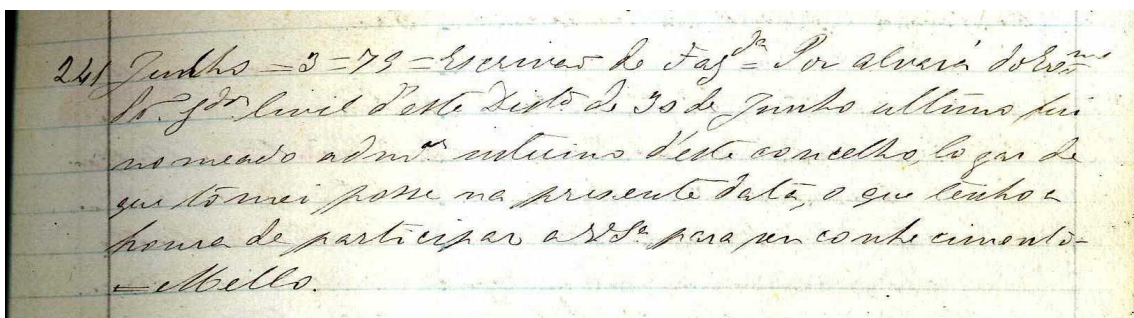 241 Junho = 3 = 79 = Escrivão de Fazdª = Por alvará do Exmº
Sr. Gdor Civil d'este Distº de 30 de Junho ultimo fui
nomeado admor interino d'este concelho, logar de
que tomei posse na presente data, o que tenho a
honra de participar a VSª para seu conhecimento-
= Mello.